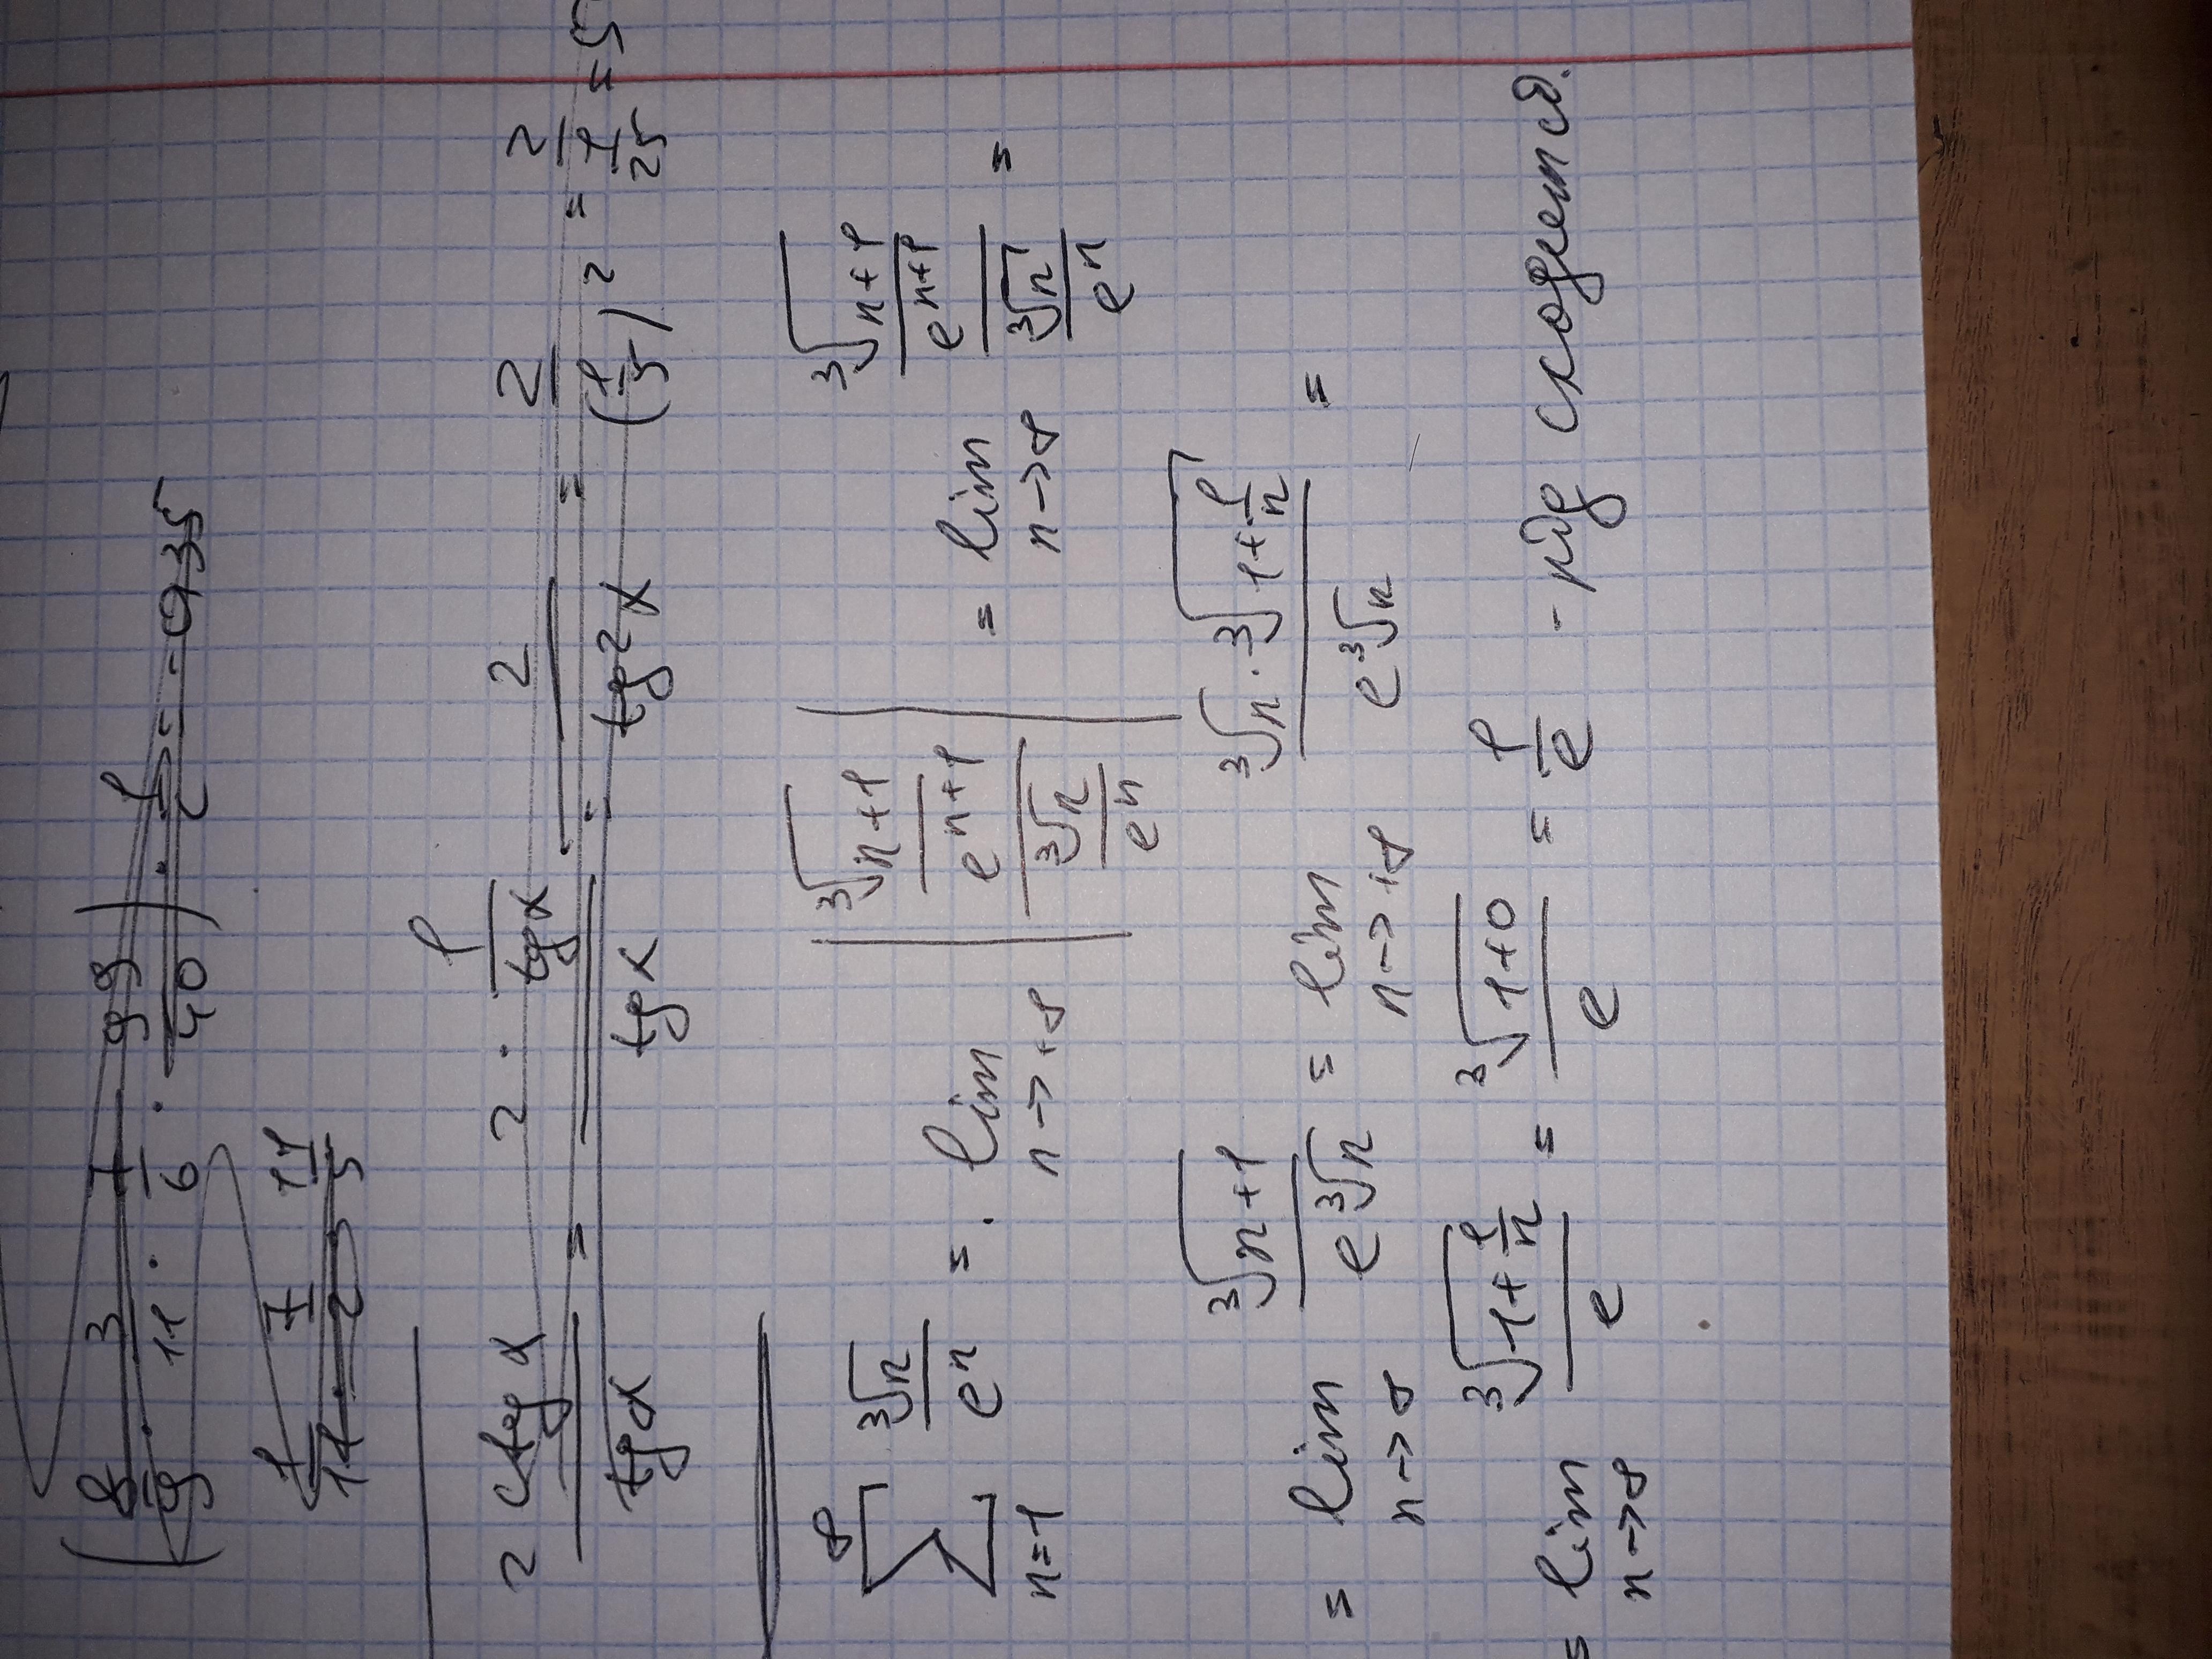 (8/9 · 3/11 · 7/6 · 99/40) · 1/2 = -0,35
1/11 · 7/2 · 11/5
2 ctg α / tg α = 2 · 1/tg α / tg α = 2 / tg² α = 2 / (1/5)² = 2 / 1/25 = 5
∑_{n=1}^{∞} ∛n / eⁿ = . lim_{n→+∞} | ∛(n+1) / e^{n+1} / ∛n / eⁿ | = lim_{n→∞} ∛(n+1) / e^{n+1} / ∛n / eⁿ =
= lim_{n→∞} ∛(n+1) / e ∛n = lim_{n→+∞} ∛n · ∛(1+1/n) / e·∛n =
= lim_{n→∞} ∛(1+1/n) / e = ∛(1+0) / e = 1/e - ряд сходится.